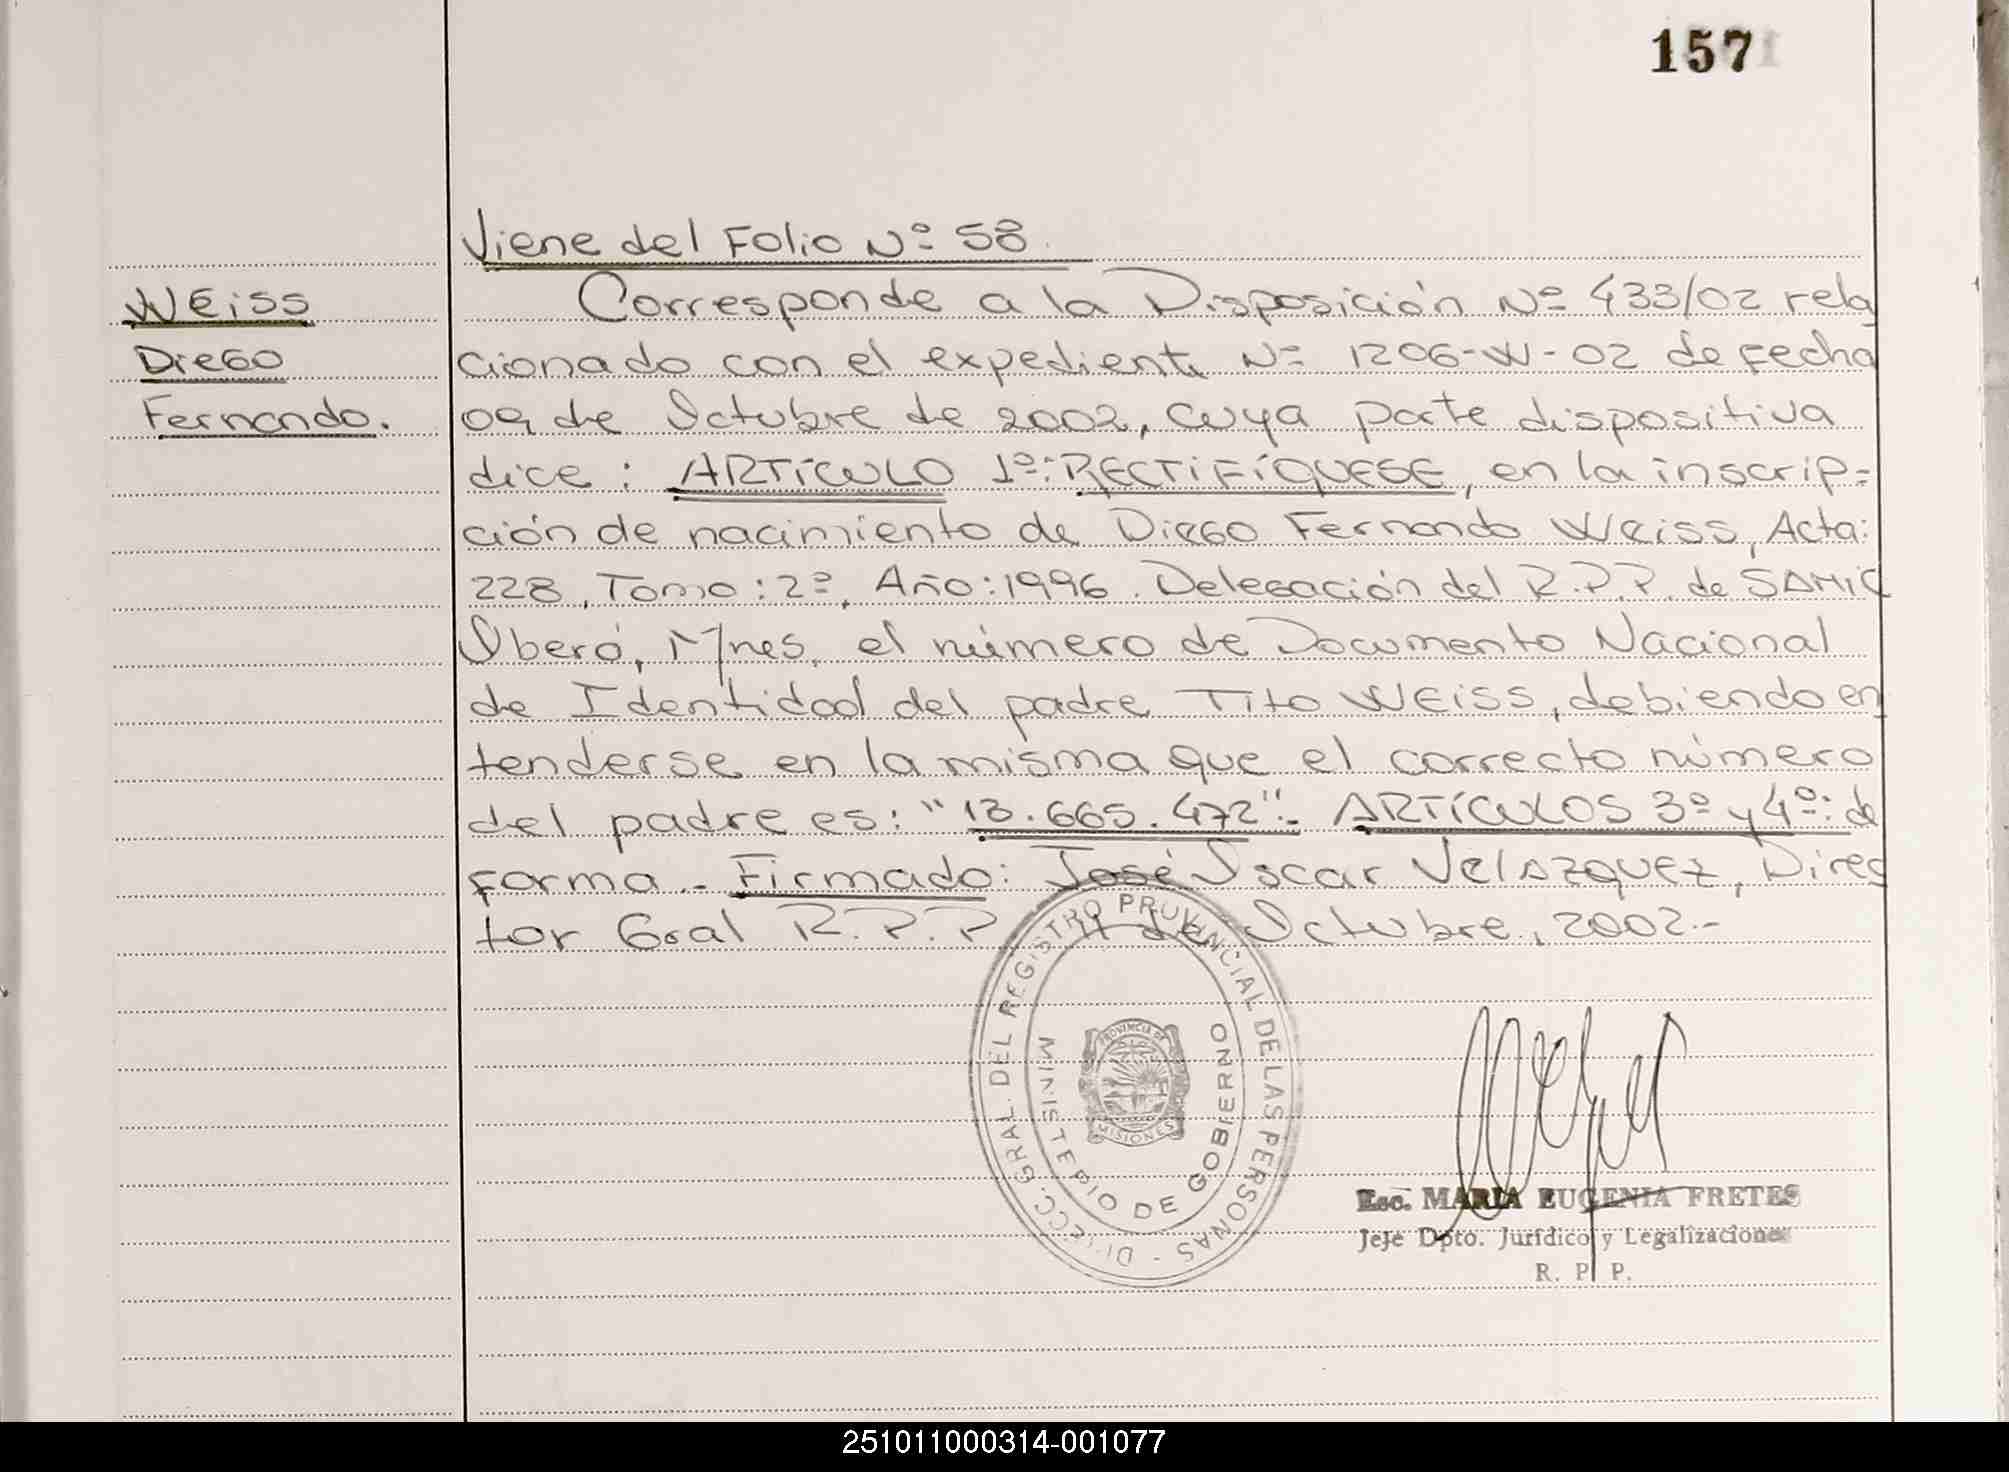 157
Viene del Folio Nº 58
Weiss
Diego
Fernando.
Corresponde a la Disposición Nº 433/02 rela
cionado con el expediente Nº 1206-W-02 de fecha
09 de Octubre de 2002, cuya parte dispositiva
dice: ARTÍCULO 1º: RECTIFÍQUESE, en la inscrip=
ción de nacimiento de Diego Fernando Weiss, Acta:
228, Tomo: 2º, Año: 1996. Delegación del R.P.P. de SAMIC
Oberá, Mnes, el número de Documento Nacional
de Identidad del padre Tito Weiss, debiendo en
tenderse en la misma que el correcto número
del padre es: "13.665.472".- ARTÍCULOS 3º y 4º: de
forma.- Firmado: José Oscar Velazquez, Direc
tor Gral R.P.P. 11 de Octubre, 2002.-
DIRECC. GRAL. DEL REGISTRO PROVINCIAL DE LAS PERSONAS -
MINISTERIO DE GOBIERNO
PROVINCIA DE
MISIONES
Esc. MARIA EUGENIA FRETES
Jefe Dpto. Jurídico y Legalizaciones
R. P. P.
251011000314-001077